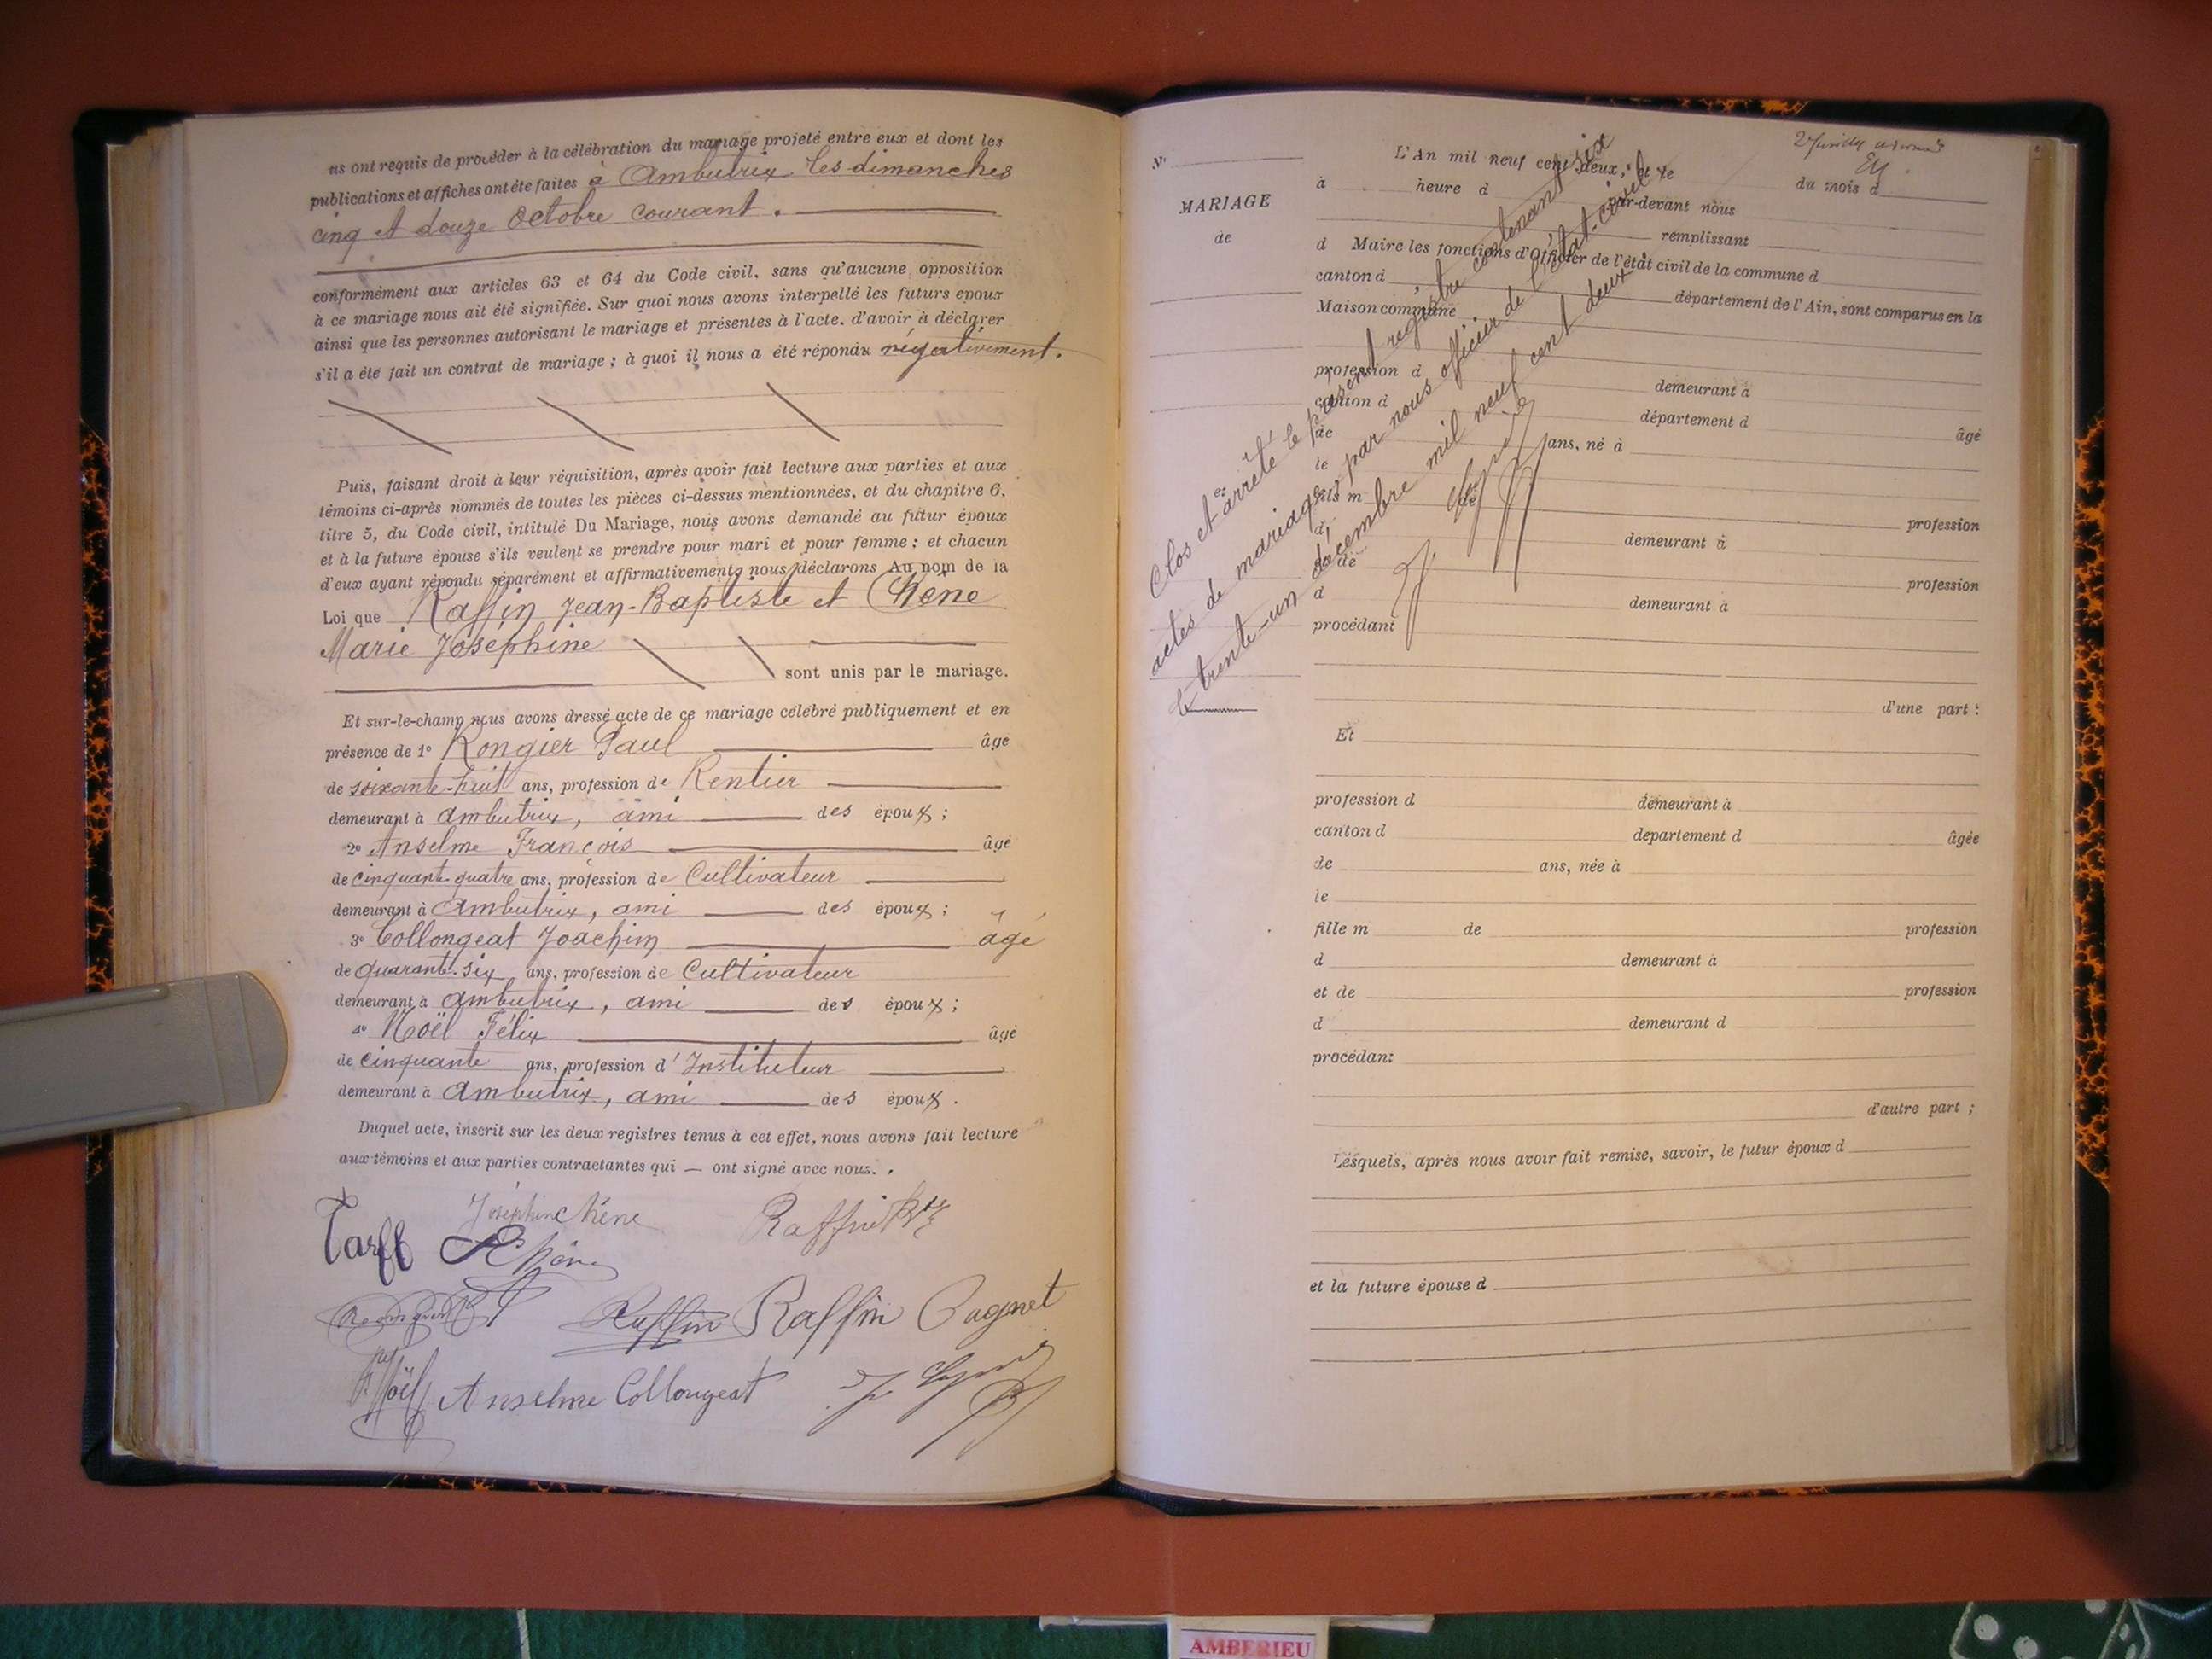 us ont requis de procéder à la célébration du mariage projeté entre eux et dont les
publications et affiches ont été faites à Ambutrix les dimanches
cinq et douze octobre courant.
conformément aux articles 63 et 64 du Code civil, sans qu'aucune opposition
à ce mariage nous ait été signifiée. Sur quoi nous avons interpellé les futurs epoux
ainsi que les personnes autorisant le mariage et présentes à l'acte, d'avoir à déclarer
s'il a été fait un contrat de mariage ; à quoi il nous a été répondu négativement.
Puis, faisant droit à leur réquisition, après avoir fait lecture aux parties et aux
témoins ci-après nommés de toutes les pièces ci-dessus mentionnées, et du chapitre 6,
titre 5, du Code civil, intitulé Du Mariage, nous avons demandé au futur époux
et à la future épouse s'ils veulent se prendre pour mari et pour femme ; et chacun
d'eux ayant répondu séparément et affirmativement, nous déclarons Au nom de la
Loi que Raffin Jean-Baptiste et Chêne
Marie Joséphine
sont unis par le mariage.
Et sur-le-champ nous avons dressé acte de ce mariage célébré publiquement et en
présence de 1° Rongier Paul âge
de soixante-huit ans, profession de Rentier
demeurant à Ambutrix, ami des époux ;
2° Anselme François âgé
de cinquante-quatre ans, profession de Cultivateur
demeurant à Ambutrix, ami des époux ;
3° Collongeat Joachim âgé
de quarante-six ans, profession de Cultivateur
demeurant à Ambutrix, ami des époux ;
4° Noël Félix âgé
de cinquante ans, profession d'Instituteur
demeurant à Ambutrix, ami des époux.
Duquel acte, inscrit sur les deux registres tenus à cet effet, nous avons fait lecture
aux témoins et aux parties contractantes qui — ont signé avec nous.
Joséphine Chêne Raffin Bte
Raffin Raffin Pagnet
Noël Anselme Collongeat
N°
MARIAGE
de
L'An mil neuf cent deux, et le
à heure d du mois d
par-devant nous
remplissant
d Maire les fonctions d'Officier de l'état civil de la commune d
canton d département de l'Ain, sont comparus en la
Maison commune
profession d demeurant à
canton d département d âgé
de ans, né à
le
fils m de profession
d demeurant à
et de profession
d demeurant à
procédant
d'une part :
Et
profession d demeurant à
canton d département d âgée
de ans, née à
le
fille m de profession
d demeurant à
et de profession
d demeurant d
procédant
d'autre part ;
Lesquels, après nous avoir fait remise, savoir, le futur époux d
et la future épouse d
Clos et arrêté le présent registre contenant six
actes de mariage, par nous officier de l'état-civil
le trente-un décembre mil neuf cent deux.
AMBERIEU